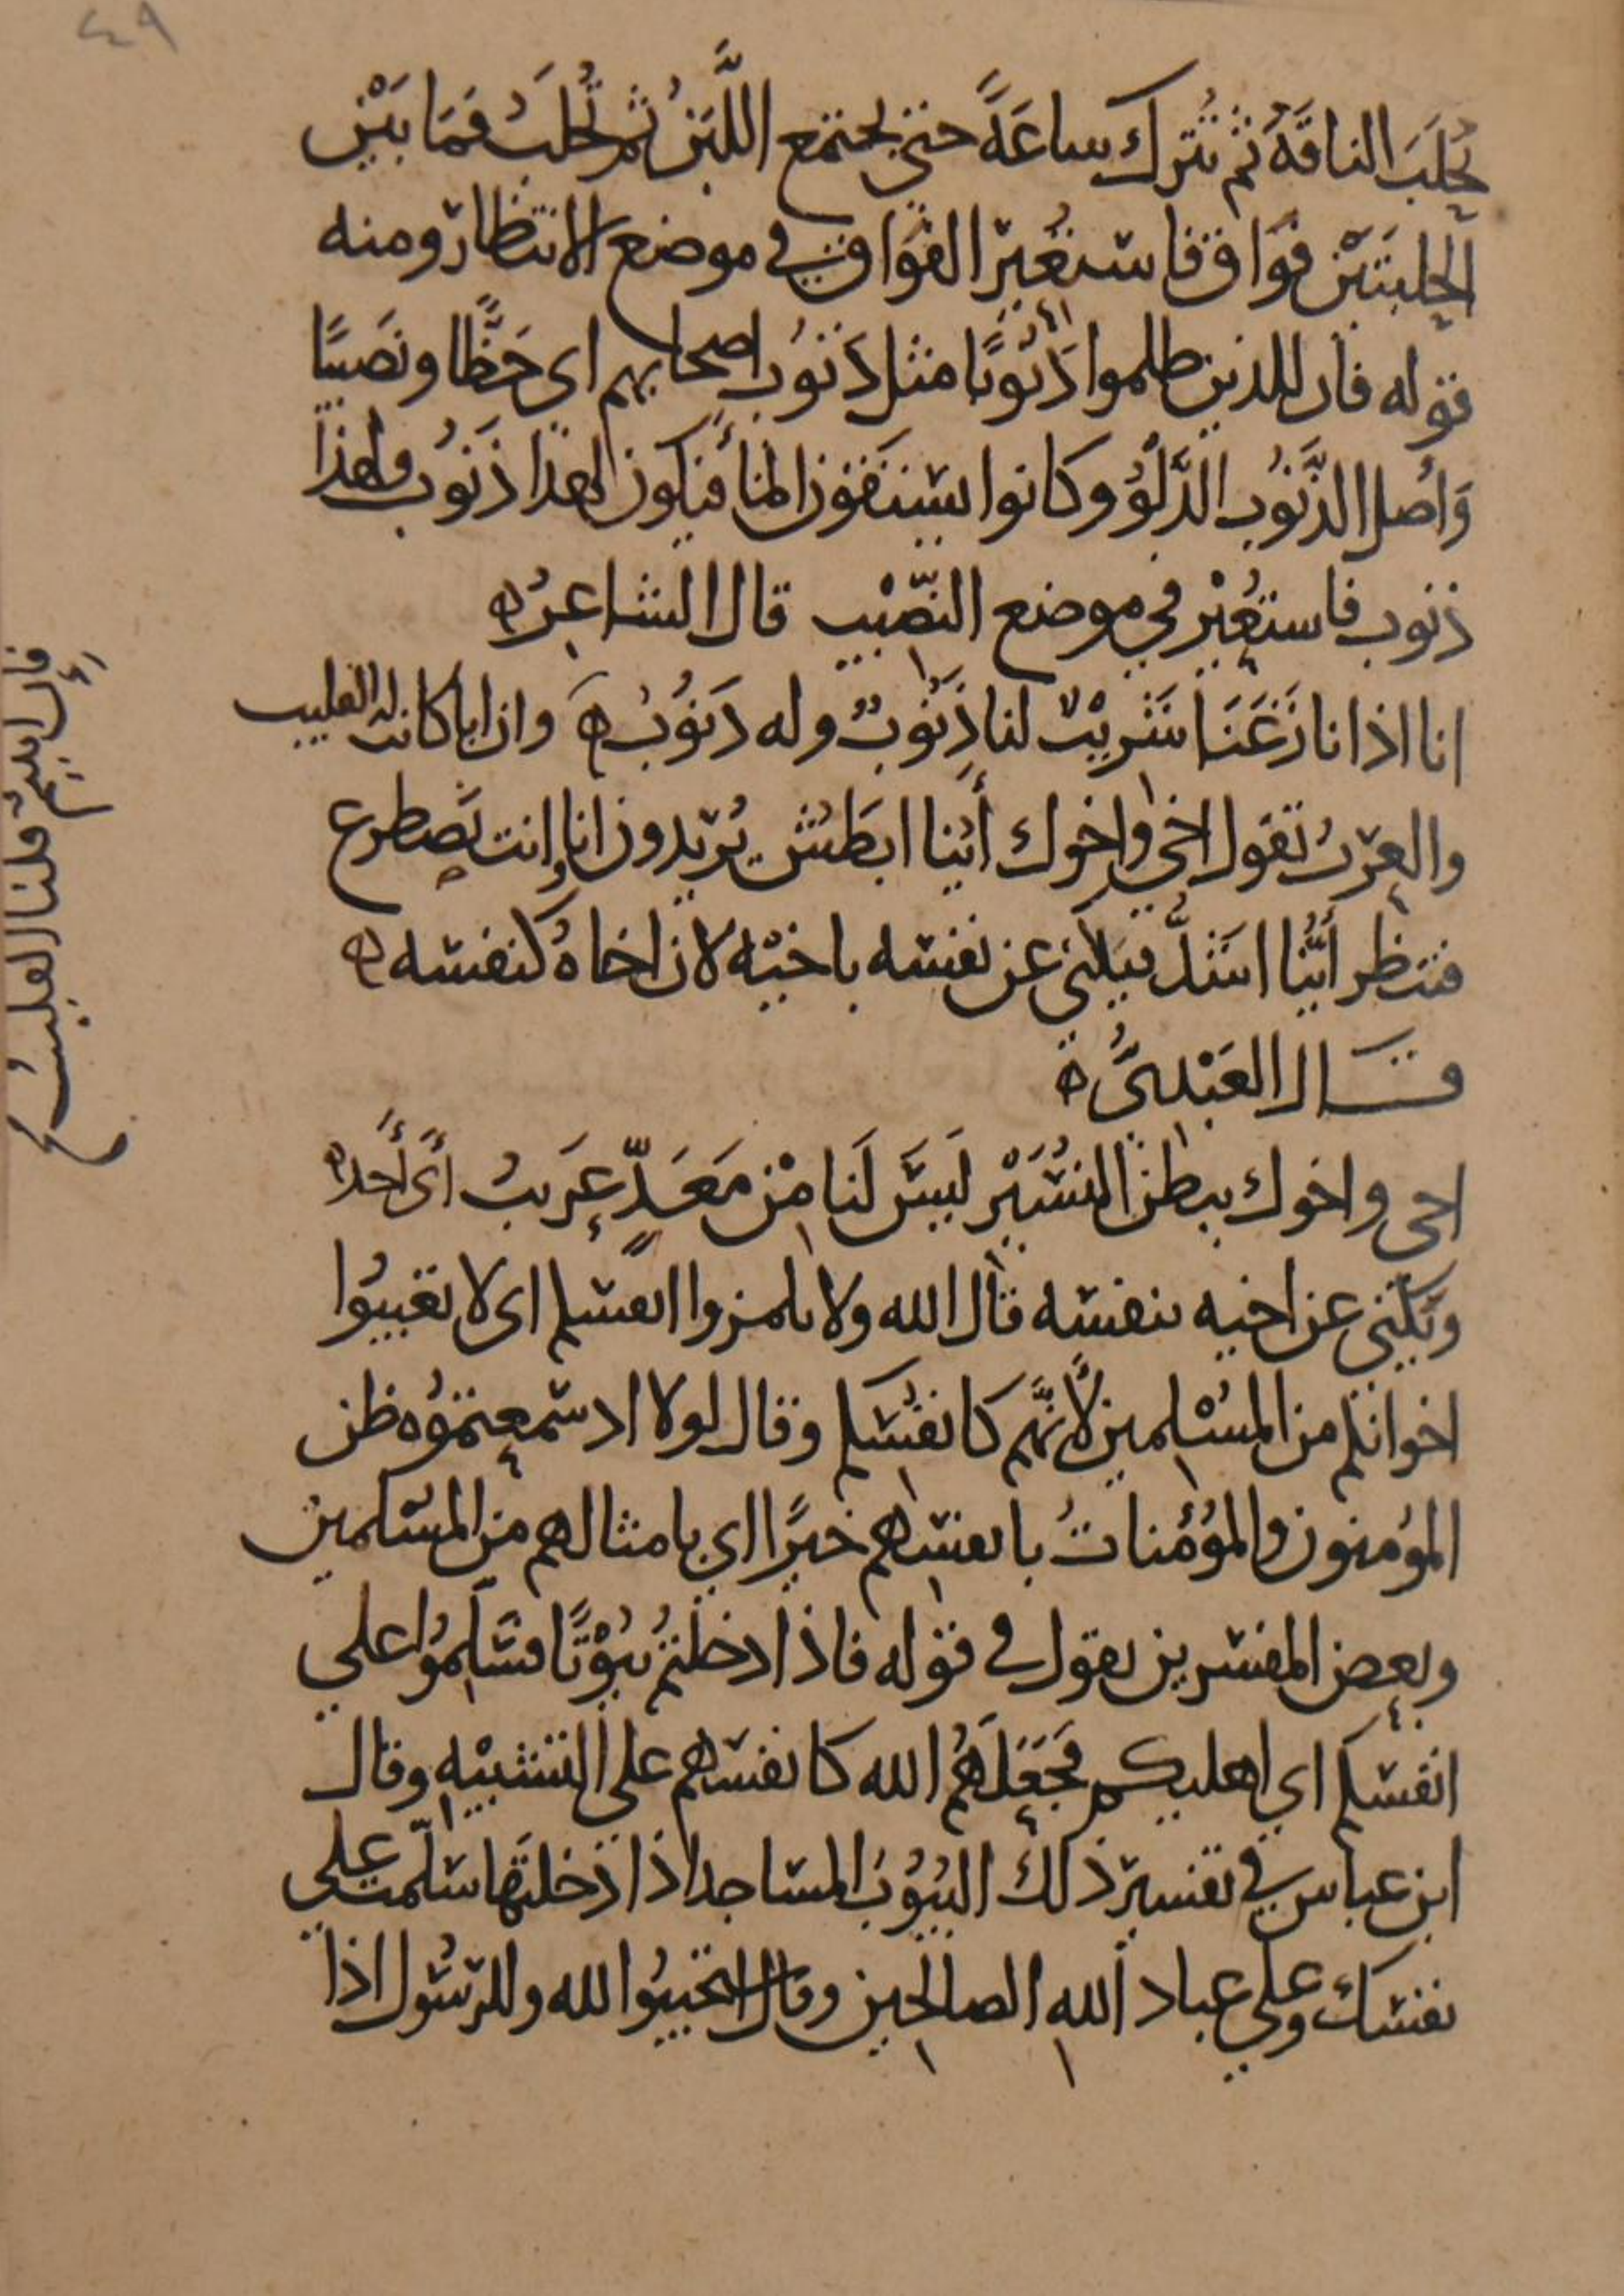 ٤٩
تُحلَبَ الناقَةُ ثم تُترك ساعَةً حتى يجتمع اللَّبَنُ ثم تُحلَبُ فمَا بَيْن
الحلبتَيْن فوَاق فاستُعِيْر الفوَاق في موضع الانتظار ومنه
قوله فان للذين ظلموا ذَنُوبًا مثل ذَنُوب اصحابهم اي حَظًّا ونَصيبًا
وَأصل الذَّنُوب الدَّلْوُ وكانوا يستقون الماء فيكون لهذا ذَنُوب ولهذا
ذنوب فاستُعِيْر في موضع النصِّيْب قال الشاعِرُ ه
انا اذا نازَعَنَا شَرِيْبٌ لنا ذَنُوبٌ وله ذَنُوْبُ ه وان ابا كانت له القليب
والعرَبُ تقول اخي واخوك أيُنا ابطَشُ يُريدون انا وانت نصطرع
فننظر أيُّنا اشَدُّ فيكني عن نفسه باخيْه لان اخاهُ كنفسه ه
قال العَبْدِيُّ ه
اخي واخوك ببطن النُسَيْر ليسَ لَنا مْن مَعَدٍّ عَرِيبُ أىْ أَحَد ه
ويَكني عن اخيه بنفسه قال الله ولا تلمزوا انفسكم اى لا تعيبُوا
اخوانكم من المسْلمين لأنَّهم كانفُسكم وقال لولا اذ سمعتموُه ظن
المؤمنون والمؤمناتُ بانفسهم خيرًا اي بامثالهم من المسلمين
وبعض المفسرين يقول في قوله فاذا دخلتمُ بُيُوْتًا فسَلِّموُا على
انفسكم اي اهليكم فجَعَلَهُم الله كانفسهم على التشبيْه وقال
ابن عباس في تفسير ذلك البُيُوُتُ المساجد اذا دخلتَها سلّمت على
نفسك وعلى عباد الله الصالحين وقال استجيبُوا لله وللرسُول اذا
فان ابيتم فلنا القليبُ